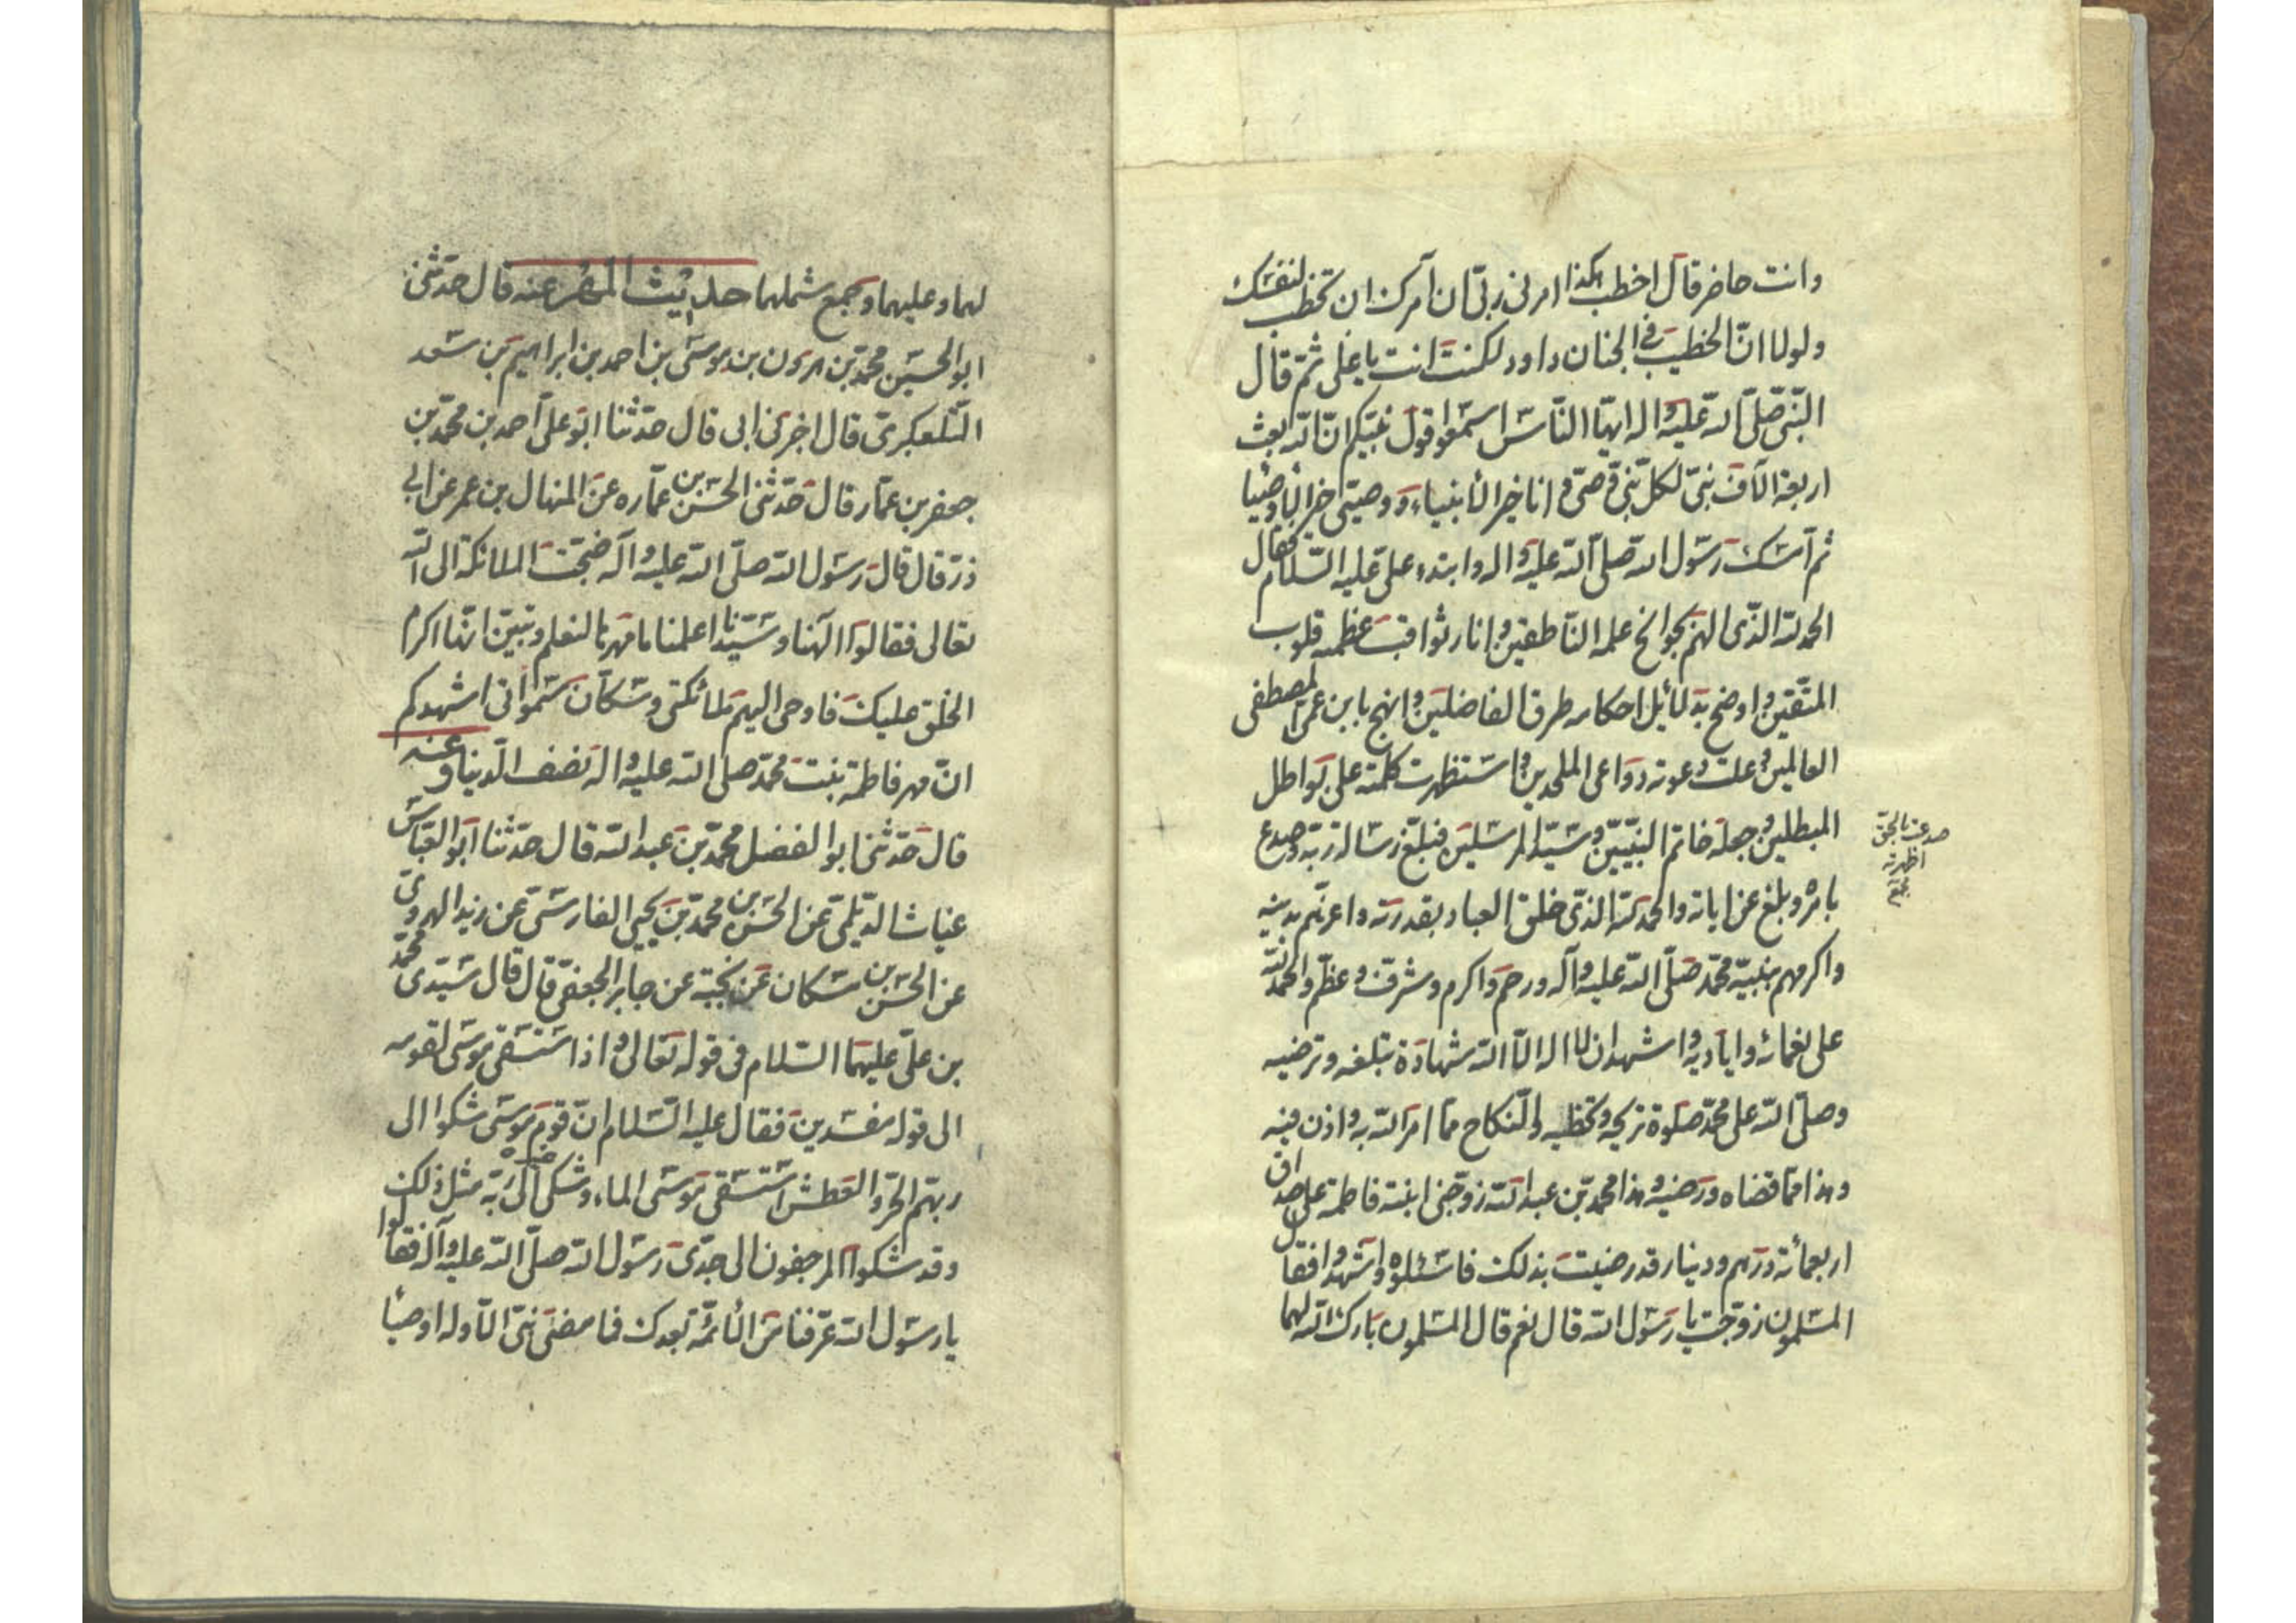 وانت حاضر قال اخطب هكذا امرنى ربّى ان آمرك ان تخطب لنفسك
ولولا انّ الخطيب فى الجنان داود لكنت انت يا على ثمّ قال
النّبى صلّى الله عليه واله ايهّا النّاس اسمعوا قول نبيّكم انّ الله بعث
اربعة الآف نبىّ لكلّ نبىّ وصىّ وانا خير الأنبياء ووصيتى خير الأوصيا
ثم امسك رسول الله صلّى الله عليه واله وابتدء على عليه السّلام فقال
الحمد لله الذّى الهم بجوانح علمه النّاطقين وانار بثواقب عظمته قلوب
المتّقين واوضح بدلائل احكامه طرق الفاضلين وانهج بابن عمى المصطفى
العالمين وعلت دعوته دواعى الملحدين واستظهرت كلمته على بواطل
المبطلين وجعله خاتم النّبيّين وسيّد المرسلين فبلّغ رسالة ربّه وصدع
بامره وبلغ عن اياته والحمد لله الذّى خلق العباد بقدرته واعزهم بدينه
واكرمهم بنبيّه محمّد صلّى الله عليه وآله ورحم واكرم وشرف وعظّم والحمد لله
على نعمائه واياديه واشهد ان لا اله الّا الله شهادة تبلغه وترضيه
وصلّى الله على محمّد صلوة تزيحه وتحظيه والنّكاح ممّا امر الله به واذن فيه
وهذا ممّا قضاه ورضيه وهذا محمّد بن عبد الله زوّجنى ابنته فاطمة على صداق
اربعمائة درهم ودينار قد رضيت بذلك فاسئلوه واشهدوا فقال
المسلمون زوّجت يا رسول الله قال نعم قال المسلمون بارك الله لهما
صدعت بالحق
اظهرته
لهما وعليهما وجمع شملهما حديث المهر عنه قال حدّثنى
ابو الحسين محمّد بن هرون بن موسى بن احمد بن ابراهيم بن سعد
التّلعكبرىّ قال اخبرنى ابى قال حدّثنا ابو على احمد بن محمّد بن
جعفر بن عمّار قال حدّثنى الحسن بن عمّاره عن المنهال بن عمر عن ابى
ذرّ قال قال رسول الله صلّى الله عليه وآله ضجّت الملائكة الى الله
تعالى فقالوا الهنا وسيّدنا اعلمنا ما مهر فاطمة لنعلم ونبيّن انّها اكرم
الخلق عليك فاوحى اليهم ملائكتى وسكّان سمواتى اشهدكم
انّ مهر فاطمة بنت محمّد صلى الله عليه واله نصف الدّنيا وعنه
قال حدّثنى ابو الفضل محمّد بن عبد الله قال حدّثنا ابو العبّاس
غياث الدّيلمىّ عن الحسن بن محمّد بن يحيى الفارسىّ عن زيد الهروىّ
عن الحسن بن سكان عن نجية عن جابر الجعفىّ قال قال سيّدى محمّد
بن علىّ عليهما السّلام فى قوله تعالى واذ استسقى موسى لقومه
الى قوله مفسدين فقال عليه السّلام انّ قوم موسى شكوا الى
ربّهم الحرّ والعطش استسقى موسى الماء وشكى الى ربّه مثل ذلك
وقد شكوا المرجفون الى جدّى رسول الله صلّى الله عليه وآله فقالوا
يا رسول الله عرّفنا من الأئمّة بعدك فما مضى نبىّ الّا وله اوصيأ